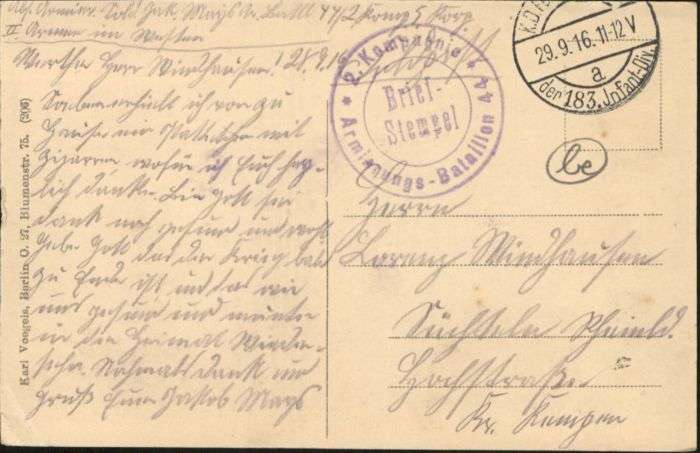 Abs. Armier. Sold. Jak. Mays Ar. Batl 44/2 Komp 5 Korp
II Armee im Westen
Werther Herr Windhausen! 28.9.16
Soeben erhielt ich von zu
Hause ein Paketchen mit
Zigarren, wofür ich Euch herz-
lich danke. Bin Gott sei
dank noch gesund und
gebe Gott das der Krieg bald
zu Ende ist und das wir
uns gesund und munter
in die Heimat Wieder-
sehn. Nochmals dank und
Gruß Euer Jakob Mays
Karl Voegels, Berlin O. 27, Blumenstr. 75. (206)
2. Kompagnie
Brief-
Stempel
Armierungs-Bataillon 44
29.9.16.11-12V
a
der 183. Infant.-Div.
Herrn
Lorenz Windhausen
Süchteln Rheinld.
Hochstraße
Kr. Kempen